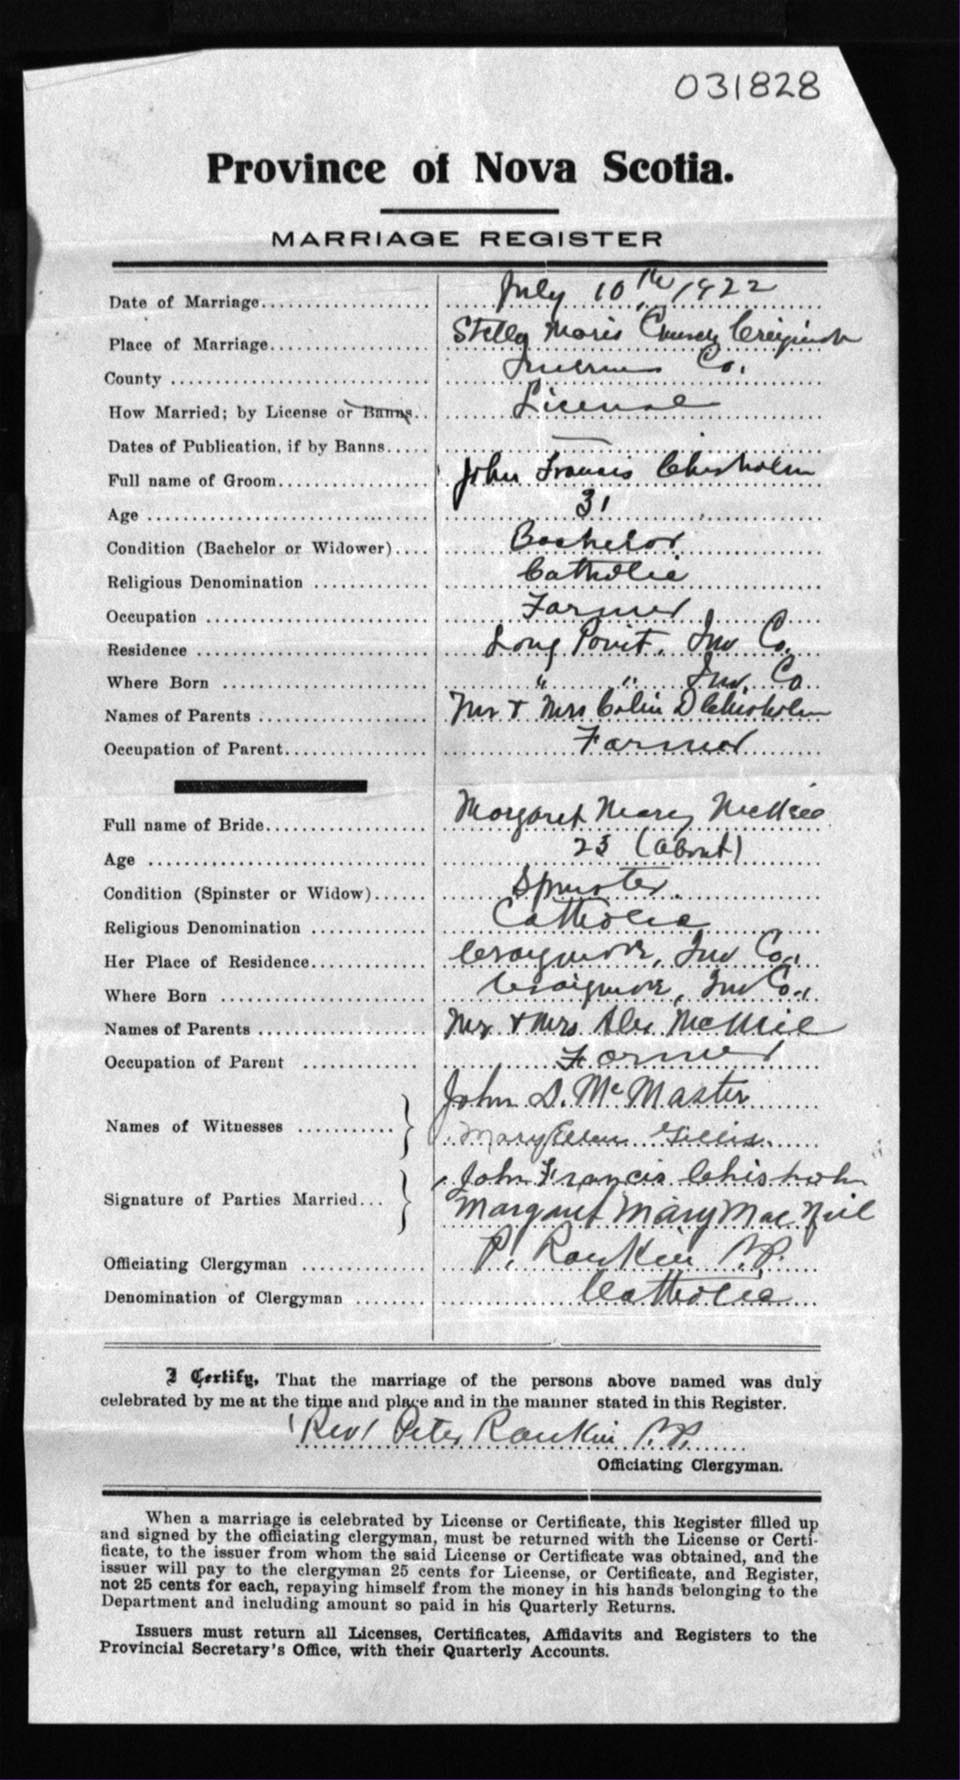 031828
Province of Nova Scotia.
MARRIAGE REGISTER
Date of Marriage.................... July 10th 1922
Place of Marriage................... Stella Maris Church Creignish
County .............................. Inverness Co.
How Married; by License or Banns.. License
Dates of Publication, if by Banns..... —
Full name of Groom.................. John Francis Chisholm
Age ................................. 31
Condition (Bachelor or Widower).... Bachelor
Religious Denomination .............. Catholic
Occupation ........................... Farmer
Residence ............................ Long Point, Inv Co.
Where Born ......................... " " Inv. Co
Names of Parents .................... Mr & Mrs Colin D Chisholm
Occupation of Parent................. Farmer
Full name of Bride................... Margaret Mary McNeil
Age ................................. 23 (about)
Condition (Spinster or Widow)...... Spinster.
Religious Denomination .............. Catholic
Her Place of Residence.............. Craigmore, Inv Co.,
Where Born ......................... Craigmore, Inv Co.,
Names of Parents .................... Mr & Mrs Alex McNeil
Occupation of Parent .............. Farmer
John D. McMaster
Names of Witnesses ...........
Mary Ellen Gillis
John Francis Chisholm
Signature of Parties Married...
Margaret Mary Mac Neil
Officiating Clergyman ............... P. Rankin P.P.
Denomination of Clergyman ........ Catholic
I Certify, That the marriage of the persons above named was duly
celebrated by me at the time and place and in the manner stated in this Register.
(Rev) Peter Rankin P.P.
Officiating Clergyman.
When a marriage is celebrated by License or Certificate, this Register filled up
and signed by the officiating clergyman, must be returned with the License or Certi-
ficate, to the issuer from whom the said License or Certificate was obtained, and the
issuer will pay to the clergyman 25 cents for License, or Certificate, and Register,
not 25 cents for each, repaying himself from the money in his hands belonging to the
Department and including amount so paid in his Quarterly Returns.
Issuers must return all Licenses, Certificates, Affidavits and Registers to the
Provincial Secretary's Office, with their Quarterly Accounts.